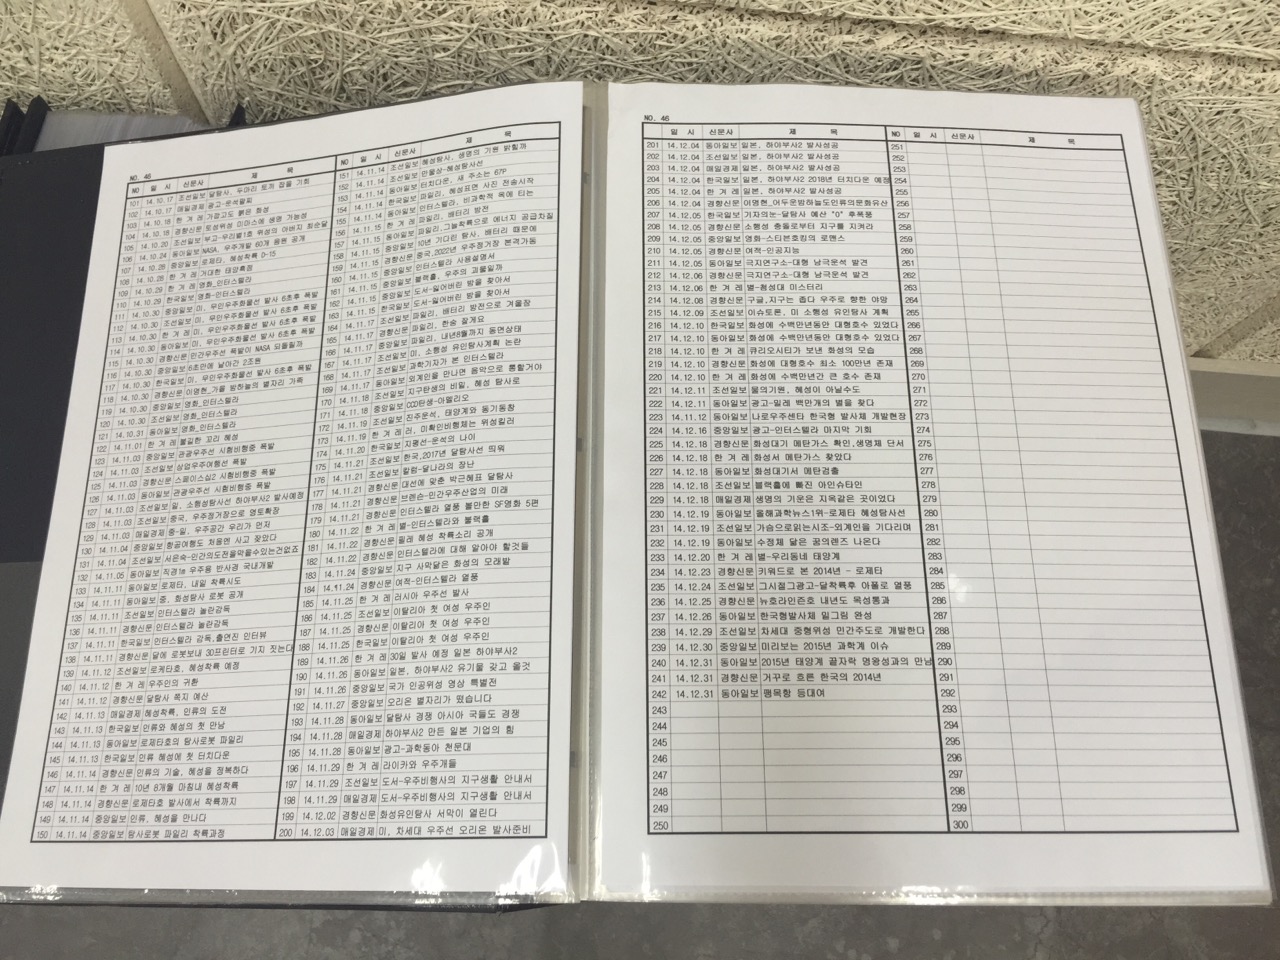 NO. 46
NO 일 시 신문사 제 목
101 14.10.17 조선일보 달탐사, 두마리 토끼 잡을 기회
102 14.10.17 매일경제 광고-운석팔찌
103 14.10.18 한 겨 레 가깝고도 붉은 화성
104 14.10.18 경향신문 토성위성 미마스에 생명 가능성
105 14.10.20 조선일보 부고-우리별1호 위성의 아버지 최순달
106 14.10.24 동아일보 NASA, 우주개발 60개 음원 공개
107 14.10.25 중앙일보 로제타, 혜성착륙 D-15
108 14.10.28 한 겨 레 거대한 태양흑점
109 14.10.29 한 겨 레 영화-인터스텔라
110 14.10.29 한국일보 영화-인터스텔라
111 14.10.30 중앙일보 미, 무인우주화물선 발사 6초후 폭발
112 14.10.30 조선일보 미, 무인우주화물선 발사 6초후 폭발
113 14.10.30 한 겨 레 미, 무인우주화물선 발사 6초후 폭발
114 14.10.30 동아일보 미, 무인우주화물선 발사 6초후 폭발
115 14.10.30 경향신문 민간우주선 폭발이 NASA 되돌릴까
116 14.10.30 중앙일보 6초만에 날아간 2조원
117 14.10.30 한국일보 미, 무인우주화물선 발사 6초후 폭발
118 14.10.30 경향신문 이명현_가을 밤하늘의 별자리 가족
119 14.10.30 조선일보 영화_인터스텔라
120 14.10.31 중앙일보 영화_인터스텔라
121 14.10.31 동아일보 영화_인터스텔라
122 14.11.01 한 겨 레 불길한 꼬리 혜성
123 14.11.03 중앙일보 관광우주선 시험비행중 폭발
124 14.11.03 조선일보 상업우주여행선 폭발
125 14.11.03 경향신문 스페이스십2 시험비행중 폭발
126 14.11.03 동아일보 관광우주선 시험비행중 폭발
127 14.11.03 동아일보 일, 소행성탐사선 하야부사2 발사예정
128 14.11.03 조선일보 중국, 우주정거장으로 영토확장
129 14.11.03 매일경제 중-일, 우주공간 우리가 먼저
130 14.11.04 중앙일보 항공여행도 처음엔 사고 잦았다
131 14.11.04 조선일보 서은숙-인간의도전을막을수있는건없죠
132 14.11.05 동아일보 직경1m 우주용 반사경 국내개발
133 14.11.11 동아일보 로제타, 내일 착륙시도
134 14.11.11 동아일보 중, 화성탐사 로봇 공개
135 14.11.11 조선일보 인터스텔라 놀란감독
136 14.11.11 경향신문 인터스텔라 놀란감독
137 14.11.11 한국일보 인터스텔라 감독,출연진 인터뷰
138 14.11.11 경향신문 달에 로봇보내 3D프린터로 기지 짓는다
139 14.11.12 조선일보 로케타호, 혜성착륙 예정
140 14.11.12 한 겨 레 우주인의 귀환
141 14.11.12 경향신문 달탐사 쪽지 예산
142 14.11.13 매일경제 혜성착륙, 인류의 도전
143 14.11.13 한국일보 인류와 혜성의 첫 만남
144 14.11.13 동아일보 로제타호의 탐사로봇 파일리
145 14.11.13 한국일보 인류 혜성에 첫 터치다운
146 14.11.14 경향신문 인류의 기술, 혜성을 정복하다
147 14.11.14 한 겨 레 10년 8개월 마침내 혜성착륙
148 14.11.14 경향신문 로제타호 발사에서 착륙까지
149 14.11.14 중앙일보 인류, 혜성을 만나다
150 14.11.14 중앙일보 탐사로봇 파일리 착륙과정
NO 일 시 신문사 제 목
151 14.11.14 조선일보 혜성탐사, 생명의 기원 밝힐까
152 14.11.14 조선일보 만물상-혜성탐사선
153 14.11.14 동아일보 터치다운, 새 주소는 67P
154 14.11.14 한국일보 파일리, 혜성표면 사진 전송시작
155 14.11.14 동아일보 인터스텔라, 비과학적 옥에 티는
156 14.11.15 한 겨 레 파일리, 배터리 방전
157 14.11.15 동아일보 파일리,그늘착륙으로 에너지 공급차질
158 14.11.15 중앙일보 10년 기다린 탐사, 배터리 때문에
159 14.11.15 경향신문 중국,2022년 우주정거장 본격가동
160 14.11.15 중앙일보 인터스텔라 사용설명서
161 14.11.15 중앙일보 블랙홀, 우주의 괴물일까
162 14.11.15 중앙일보 도서-잃어버린 밤을 찾아서
163 14.11.15 한국일보 도서-잃어버린 밤을 찾아서
164 14.11.17 조선일보 파일리, 배터리 방전으로 겨울잠
165 14.11.17 경향신문 파일리, 한숨 잘게요
166 14.11.17 중앙일보 파일리, 내년8월까지 동면상태
167 14.11.17 조선일보 미, 소행성 유인탐사계획 논란
168 14.11.17 조선일보 과학기자가 본 인터스텔라
169 14.11.17 동아일보 외계인을 만나면 음악으로 통할거야
170 14.11.18 조선일보 지구탄생의 비밀, 혜성 탐사로
171 14.11.18 중앙일보 CCD탄생-아멜리오
172 14.11.19 조선일보 진주운석, 태양계와 동기동창
173 14.11.19 한 겨 레 러, 미확인비행체는 위성킬러
174 14.11.20 한국일보 지평선-운석의 나이
175 14.11.21 조선일보 한국,2017년 달탐사선 띄워
176 14.11.21 동아일보 칼럼-달나라의 장난
177 14.11.21 경향신문 대선에 맞춘 박근혜표 달탐사
178 14.11.21 경향신문 브랜슨-민간우주산업의 미래
179 14.11.21 경향신문 인터스텔라 열풍 볼만한 SF영화 5편
180 14.11.22 한 겨 레 별-인터스텔라와 블랙홀
181 14.11.22 경향신문 필레 혜성 착륙소리 공개
182 14.11.22 경향신문 인터스텔라에 대해 알아야 할것들
183 14.11.24 중앙일보 지구 사막닮은 화성의 모래밭
184 14.11.24 경향신문 여적-인터스텔라 열풍
185 14.11.25 한 겨 레 러시아 우주선 발사
186 14.11.25 조선일보 이탈리아 첫 여성 우주인
187 14.11.25 경향신문 이탈리아 첫 여성 우주인
188 14.11.25 한국일보 이탈리아 첫 여성 우주인
189 14.11.26 한 겨 레 30일 발사 예정 일본 하야부사2
190 14.11.26 동아일보 일본, 하야부사2 유기물 갖고 올것
191 14.11.26 중앙일보 국가 인공위성 영상 특별전
192 14.11.27 중앙일보 오리온 별자리가 떴습니다
193 14.11.28 동아일보 달탐사 경쟁 아시아 국들도 경쟁
194 14.11.28 매일경제 하야부사2 만든 일본 기업의 힘
195 14.11.28 동아일보 광고-과학동아 천문대
196 14.11.29 한 겨 레 라이카와 우주개들
197 14.11.29 조선일보 도서-우주비행사의 지구생활 안내서
198 14.11.29 매일경제 도서-우주비행사의 지구생활 안내서
199 14.12.02 경향신문 화성유인탐사 서막이 열린다
200 14.12.03 매일경제 미, 차세대 우주선 오리온 발사준비
NO. 46
일 시 신문사 제 목
201 14.12.04 동아일보 일본, 하야부사2 발사성공
202 14.12.04 조선일보 일본, 하야부사2 발사성공
203 14.12.04 매일경제 일본, 하야부사2 발사성공
204 14.12.04 한국일보 일본, 하야부사2 2018년 터치다운 예정
205 14.12.04 한 겨 레 일본, 하야부사2 발사성공
206 14.12.04 경향신문 이명현_어두운밤하늘도인류의문화유산
207 14.12.05 한국일보 기자의눈-달탐사 예산 "0" 후폭풍
208 14.12.05 경향신문 소행성 충돌로부터 지구를 지켜라
209 14.12.05 중앙일보 영화-스티븐호킹의 로맨스
210 14.12.05 경향신문 여적-인공지능
211 14.12.05 동아일보 극지연구소-대형 남극운석 발견
212 14.12.06 경향신문 극지연구소-대형 남극운석 발견
213 14.12.06 한 겨 레 별-첨성대 미스터리
214 14.12.08 경향신문 구글,지구는 좁다 우주로 향한 야망
215 14.12.09 조선일보 이슈토론, 미 소행성 유인탐사 계획
216 14.12.10 한국일보 화성에 수백만년동안 대형호수 있었다
217 14.12.10 동아일보 화성에 수백만년동안 대형호수 있었다
218 14.12.10 한 겨 레 큐리오시티가 보낸 화성의 모습
219 14.12.10 경향신문 화성에 대형호수 최소 100만년 존재
220 14.12.10 한 겨 레 화성에 수백만년간 큰 호수 존재
221 14.12.11 조선일보 물의기원, 혜성이 아닐수도
222 14.12.11 동아일보 광고-밀레 백만개의 별을 찾다
223 14.11.12 동아일보 나로우주센타 한국형 발사체 개발현장
224 14.12.16 중앙일보 광고-인터스텔라 마지막 기회
225 14.12.18 경향신문 화성대기 메탄가스 확인,생명체 단서
226 14.12.18 한 겨 레 화성서 메탄가스 찾았다
227 14.12.18 동아일보 화성대기서 메탄검출
228 14.12.18 조선일보 블랙홀에 빠진 아인슈타인
229 14.12.18 매일경제 생명의 기운은 지옥같은 곳이었다
230 14.12.19 동아일보 올해과학뉴스1위-로제타 혜성탐사선
231 14.12.19 조선일보 가슴으로읽는시조-외계인을 기다리며
232 14.12.19 동아일보 수정체 닮은 꿈의렌즈 나온다
233 14.12.20 한 겨 레 별-우리동네 태양계
234 14.12.23 경향신문 키워드로 본 2014년 - 로제타
235 14.12.24 조선일보 그시절그광고-달착륙후 아폴로 열풍
236 14.12.25 경향신문 뉴호라인즌호 내년도 목성통과
237 14.12.26 동아일보 한국형발사체 밑그림 완성
238 14.12.29 조선일보 차세대 중형위성 민간주도로 개발한다
239 14.12.30 중앙일보 미리보는 2015년 과학계 이슈
240 14.12.31 동아일보 2015년 태양계 끝자락 명왕성과의 만남
241 14.12.31 경향신문 거꾸로 흐른 한국의 2014년
242 14.12.31 동아일보 팽목항 등대여
243
244
245
246
247
248
249
250
NO 일 시 신문사 제 목
251
252
253
254
255
256
257
258
259
260
261
262
263
264
265
266
267
268
269
270
271
272
273
274
275
276
277
278
279
280
281
282
283
284
285
286
287
288
289
290
291
292
293
294
295
296
297
298
299
300